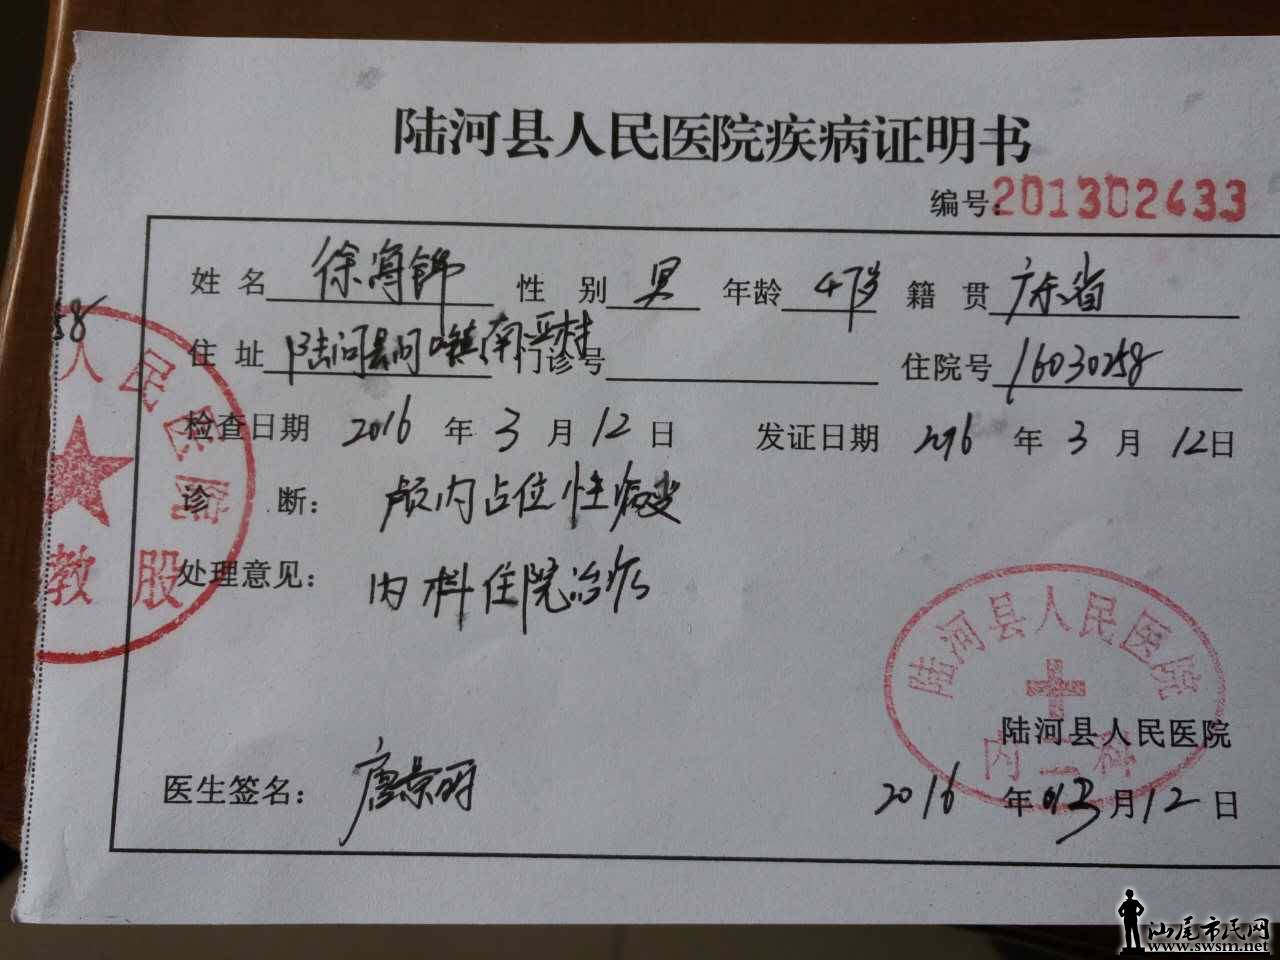 陆河县人民医院疾病证明书
编号:201302433
姓名 徐 锦 性别 男 年龄 47岁 籍贯 广东省
58
住址 陆河县河 镇南 村 门诊号 住院号 16030258
检查日期 2016 年 3 月 12 日 发证日期 2016 年 3 月 12 日
诊断: 颅内占位性病变
处理意见: 内科住院治疗
人民医院
教股
陆河县人民医院
内二科
陆河县人民医院
医生签名: 唐景明
2016 年 03 月 12 日
汕尾市民网
www.swsm.net